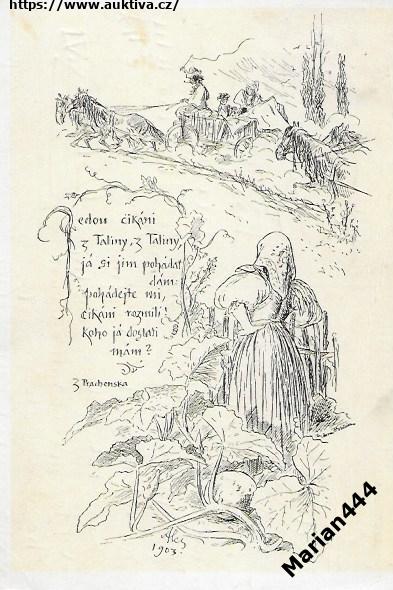 https://www.auktiva.cz/
Jedou cikáni
z Taliny, z Taliny
já si jim pohádat
dám:
pohádejte mi,
cikáni rozmilí!
koho já dostati
mám?
Z Prachenska
1903
Marian444